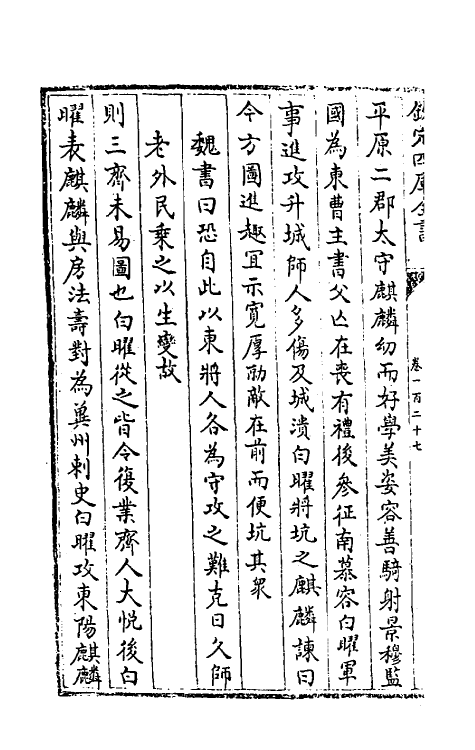 欽定四庫全書
卷一百二十七
平原二郡太守麒麟幼而好學美姿容善騎射景穆監
國為東曹主書父亡在喪有禮後參征南慕容白曜軍
事進攻升城師人多傷及城潰白曜將坑之麒麟諫曰
今方圖進趣宜示寬厚勍敵在前而便坑其衆
魏書曰恐自此以東將人各為守攻之難克日久師
老外民乗之以生變故
則三齊未易圖也白曜從之皆令復業齊人大悦後白
曜表麒麟與房法壽對為冀州刺史白曜攻東陽麒麟